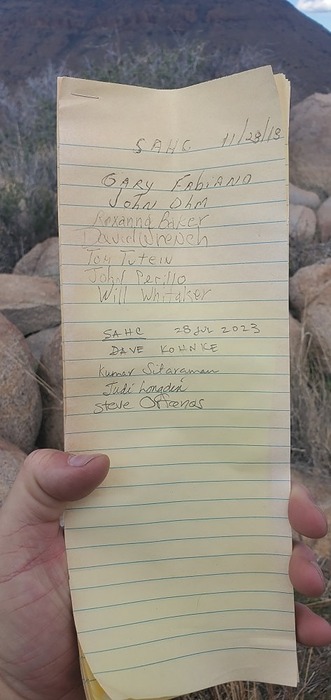 SAHC 11/28/18
GARY FABIANO
John Ohm
Roxanna Baker
David Wrench
Tom Tutein
John Perillo
Will Whitaker
SAHC 28 JUL 2023
DAVE KOHNKE
Kumar Sitaraman
Judi Longden
Steve